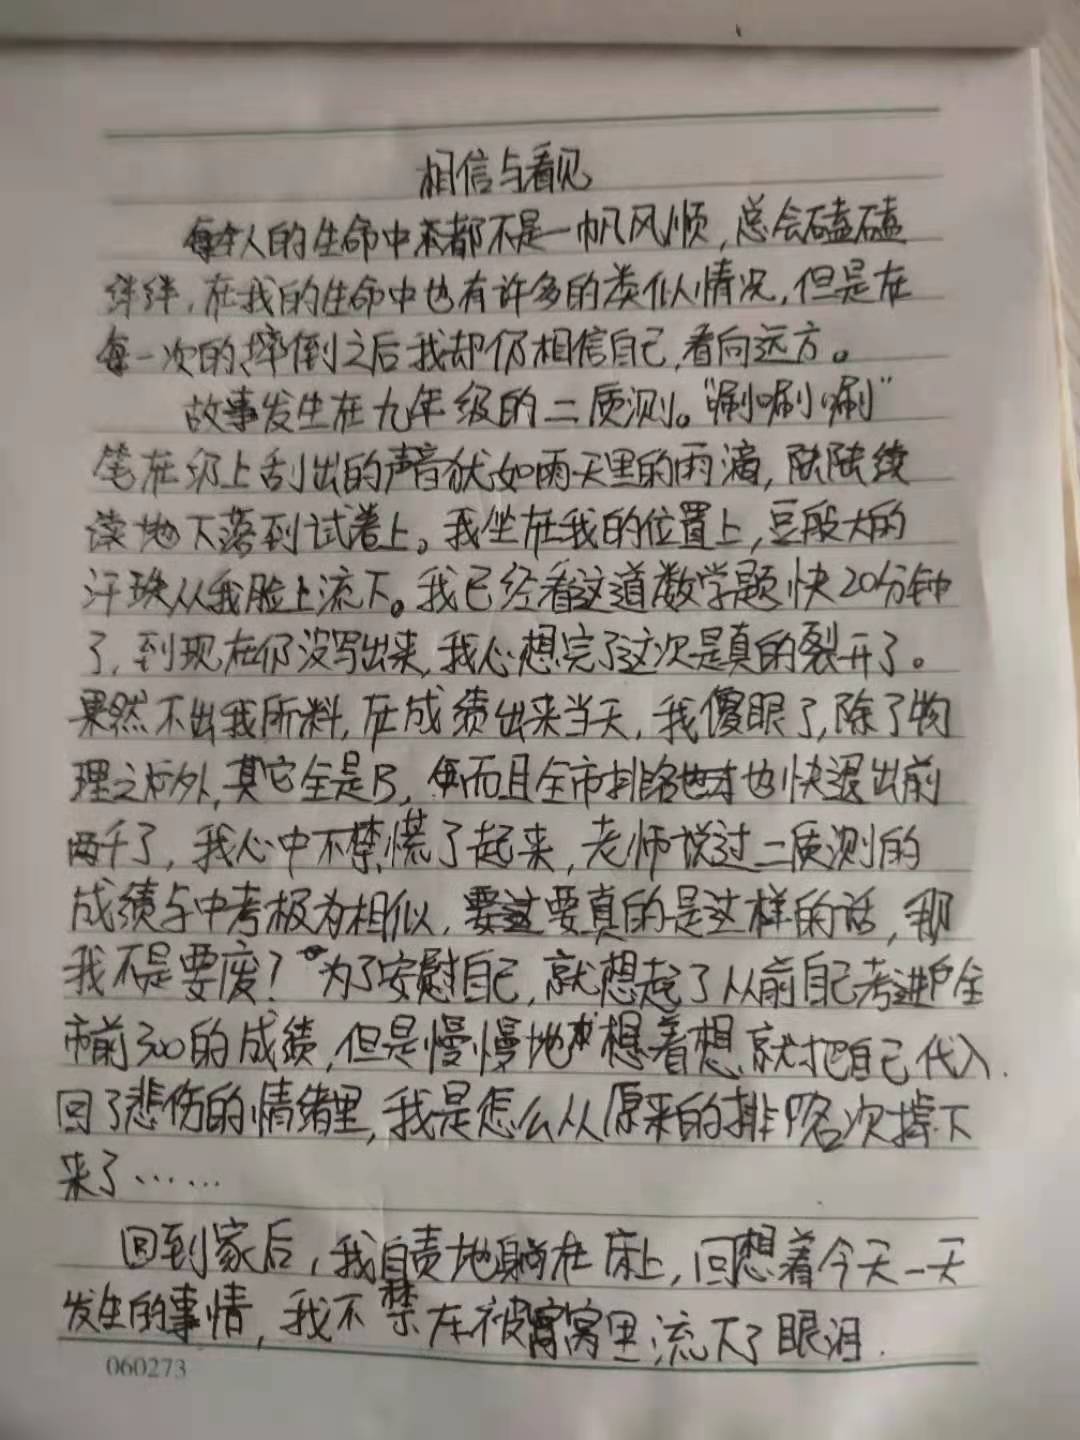 相信与看见
每个人的生命中都不是一帆风顺，总会磕磕
绊绊，在我的生命中也有许多的类似情况，但是在
每一次的摔倒之后我却仍相信自己，看向远方。
故事发生在九年级的二质测。“唰唰唰”
笔在纸上刮出的声音犹如雨天里的雨滴，陆陆续
续地下落到试卷上。我坐在我的位置上，豆段大的
汗珠从我脸上流下。我已经看这道数学题快20分钟
了，到现在仍没写出来，我心想完了这次是真的裂开了。
果然不出我所料，在成绩出来当天，我傻眼了，除了物
理之外，其它全是B，而且全市排名也快退出前
两千了，我心中不禁慌了起来，老师说过二质测的
成绩与中考极为相似，要真的是这样的话，那
我不是要废？为了安慰自己，就想起了从前自己考进全
市前300的成绩，但是慢慢地想着想，就把自己代入
回了悲伤的情绪里，我是怎么从原来的排名次掉下
来了……
回到家后，我自责地躺在床上，回想着今天一天
发生的事情，我不禁在被窝里流下了眼泪.
060273